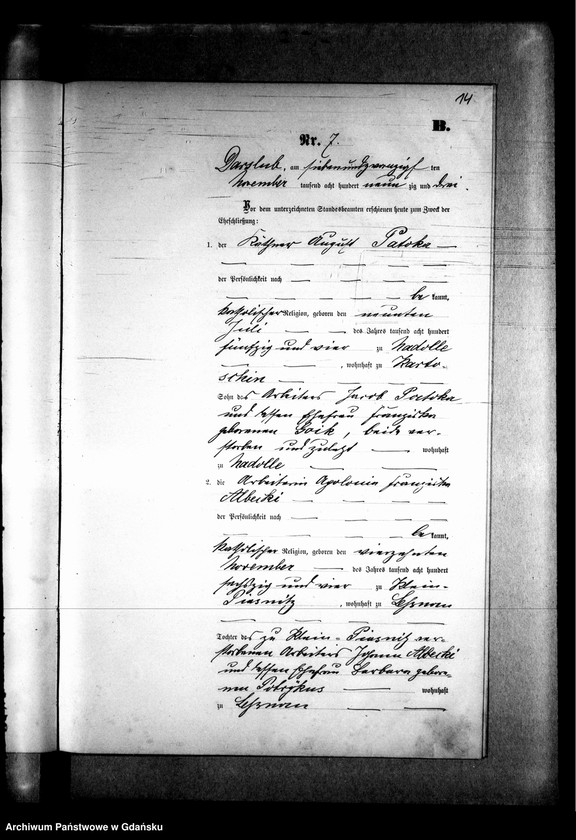 14
B.
Nr. 7.
Darslub, am siebenundzwanzigsten
November tausend acht hundert neunzig und drei.
Vor dem unterzeichneten Standesbeamten erschienen heute zum Zweck der
Eheschließung:
1. der Käthner August Patoka
der Persönlichkeit nach
bekannt,
katholischer Religion, geboren den neunten
Juli des Jahres tausend acht hundert
fünfzig und vier zu Nadolle
, wohnhaft zu Karto-
schin
Sohn des Arbeiters Jacob Patoka
und dessen Ehefrau Franziska
geborenen Goik, beide ver-
storben und zuletzt wohnhaft
zu Nadolle
2. die Arbeiterin Apolonia Franziska
Albecki
der Persönlichkeit nach
bekannt,
katholischer Religion, geboren den vierzehnten
November des Jahres tausend acht hundert
sechszig und vier zu Klein-
Piasnitz, wohnhaft zu Lesnau
Tochter des zu Klein-Piasnitz ver-
storbenen Arbeiters Johann Albecki
und dessen Ehefrau Barbara gebore-
nen wohnhaft
zu Lesnau
Archiwum Państwowe w Gdańsku